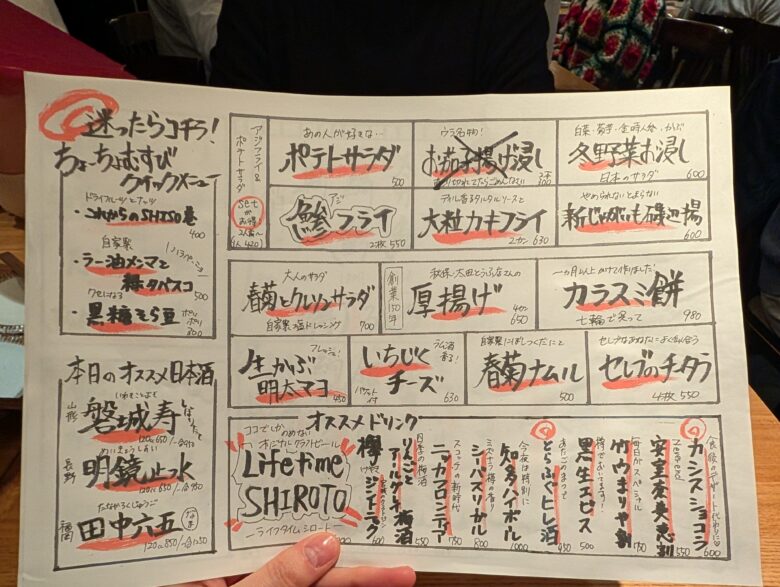 迷ったらコチラ!
ちょちょむすび
クイックメニュー
ドライフルーツとナッツ
・これからのSHISO巻
400
自家製
・ラー油メンマと
辣タバスコ
クセになる
500
・黒糖そら豆
ポリポリ
300
本日のオススメ日本酒
磐城寿
120cc 650/一合950
長野
明鏡止水
120cc 650/一合950
福岡
たなかろくじゅうご
田中六五
120cc 850/
アジフライ&
ポテトサラダ
Set
がお得
あの人が好きな…
ポテトサラダ
500
ウラ名物!
お茄子揚げ浸し
白菜・菊芋・金時人参・かぶ
冬野菜お浸し
日本のサラダ
600
アジ
鯵フライ
2枚 550
ディル香るタルタルソースと
大粒カキフライ
2カン 630
やめられないとまらない
新じゃがいも磯辺揚
600
大人のサラダ
春菊とクレソンサラダ
自家製塩ドレッシング
700
創業150年
秋保・太田とうふ店さんの
厚揚げ
650
一ヵ月以上かけて作りました!
カラスミ餅
七輪で炙って
980
フレッシュ!
生かぶ
明太マヨ
450
いちじく
チーズ
バケット付
630
自家製にぼしつくだにと
春菊ナムル
500
セレブなあなたに
セレブのチータラ
4枚 550
オススメドリンク
ココでしかのめない
オリジナルクラフトビール
Lifetime
SHIROTO
―ライフタイムシロート―
欅ジントニック
600
りんごとアールグレイ梅酒
スコッチの新時代
ニッカフロンティア
750
ミズナラ樽の香り
シーバスリーガル
800
今夜は特別に
知多ハイボール
1000
あたごのまつと
とらふぐヒレ酒
950
樽でおいてます!
黒生エビス
500
毎日がスペシャル
竹内まりや割
750
Never end
安室奈美恵割
550
食後のデザート代わりに♡
カシスショコラ
600